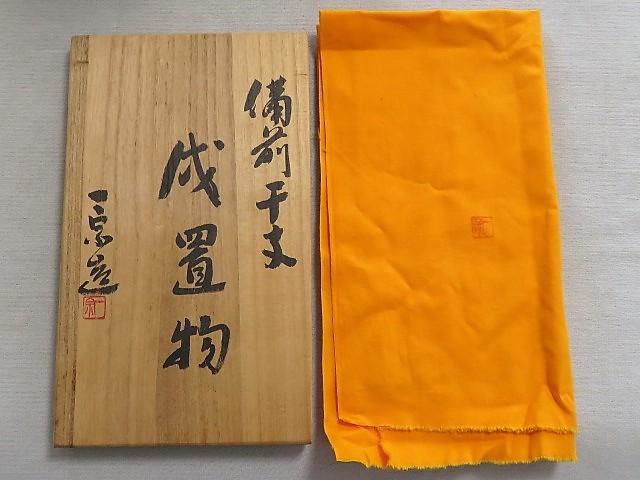 備前干支
戌置物
一宗造